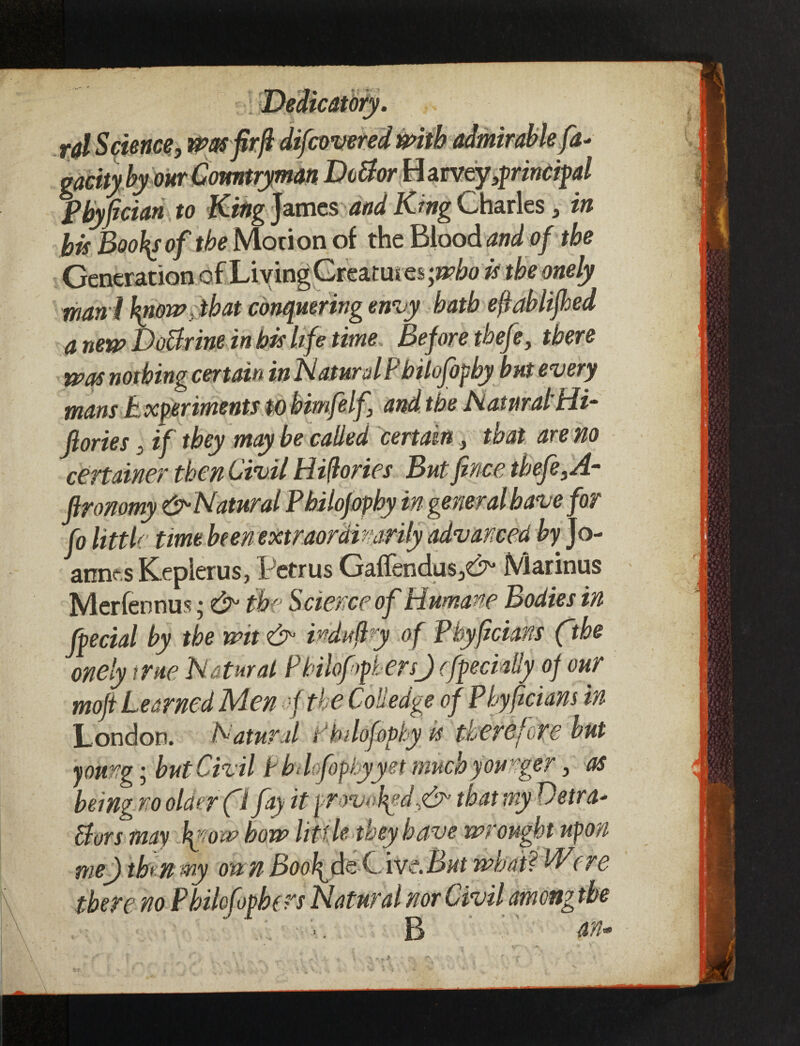 Dedicatory.
ral Science, was first discovered with admirable sa-
gacity by our Countryman Doctor Harvey, principal
Physician to King James and King Charles, in
his Books of the Motion of the Blood and of the
Generation of Living Creatures; who is the onely
man I know, that conquering envy hath established
a new Doctrine in his life time. Before these, there
was nothing certain in Natural Philosophy but every
mans Experiments to himself, and the Natural Hi-
stories, if they may be called certain, that are no
certainer then Civil Histories. But since these, A-
stronomy & Natural Philosophy in general have for
so little time been extraordinarily advanced by Jo-
annes Keplerus, Petrus Gassendus, & Marinus
Mersennus; & the Science of Humane Bodies in
special by the wit & industry of Physicians (the
onely true Natural Philosophers) especially of our
most Learned Men of the Colledge of Physicians in
London. Natural Philosophy is therefore but
young; but Civil Philosophy yet much younger, as
being no older (I say it provoked, & that my Detra-
ctors may know how little they have wrought upon
me) then my own Book de Cive. But what? Were
there no Philosophers Natural nor Civil among the
B an-